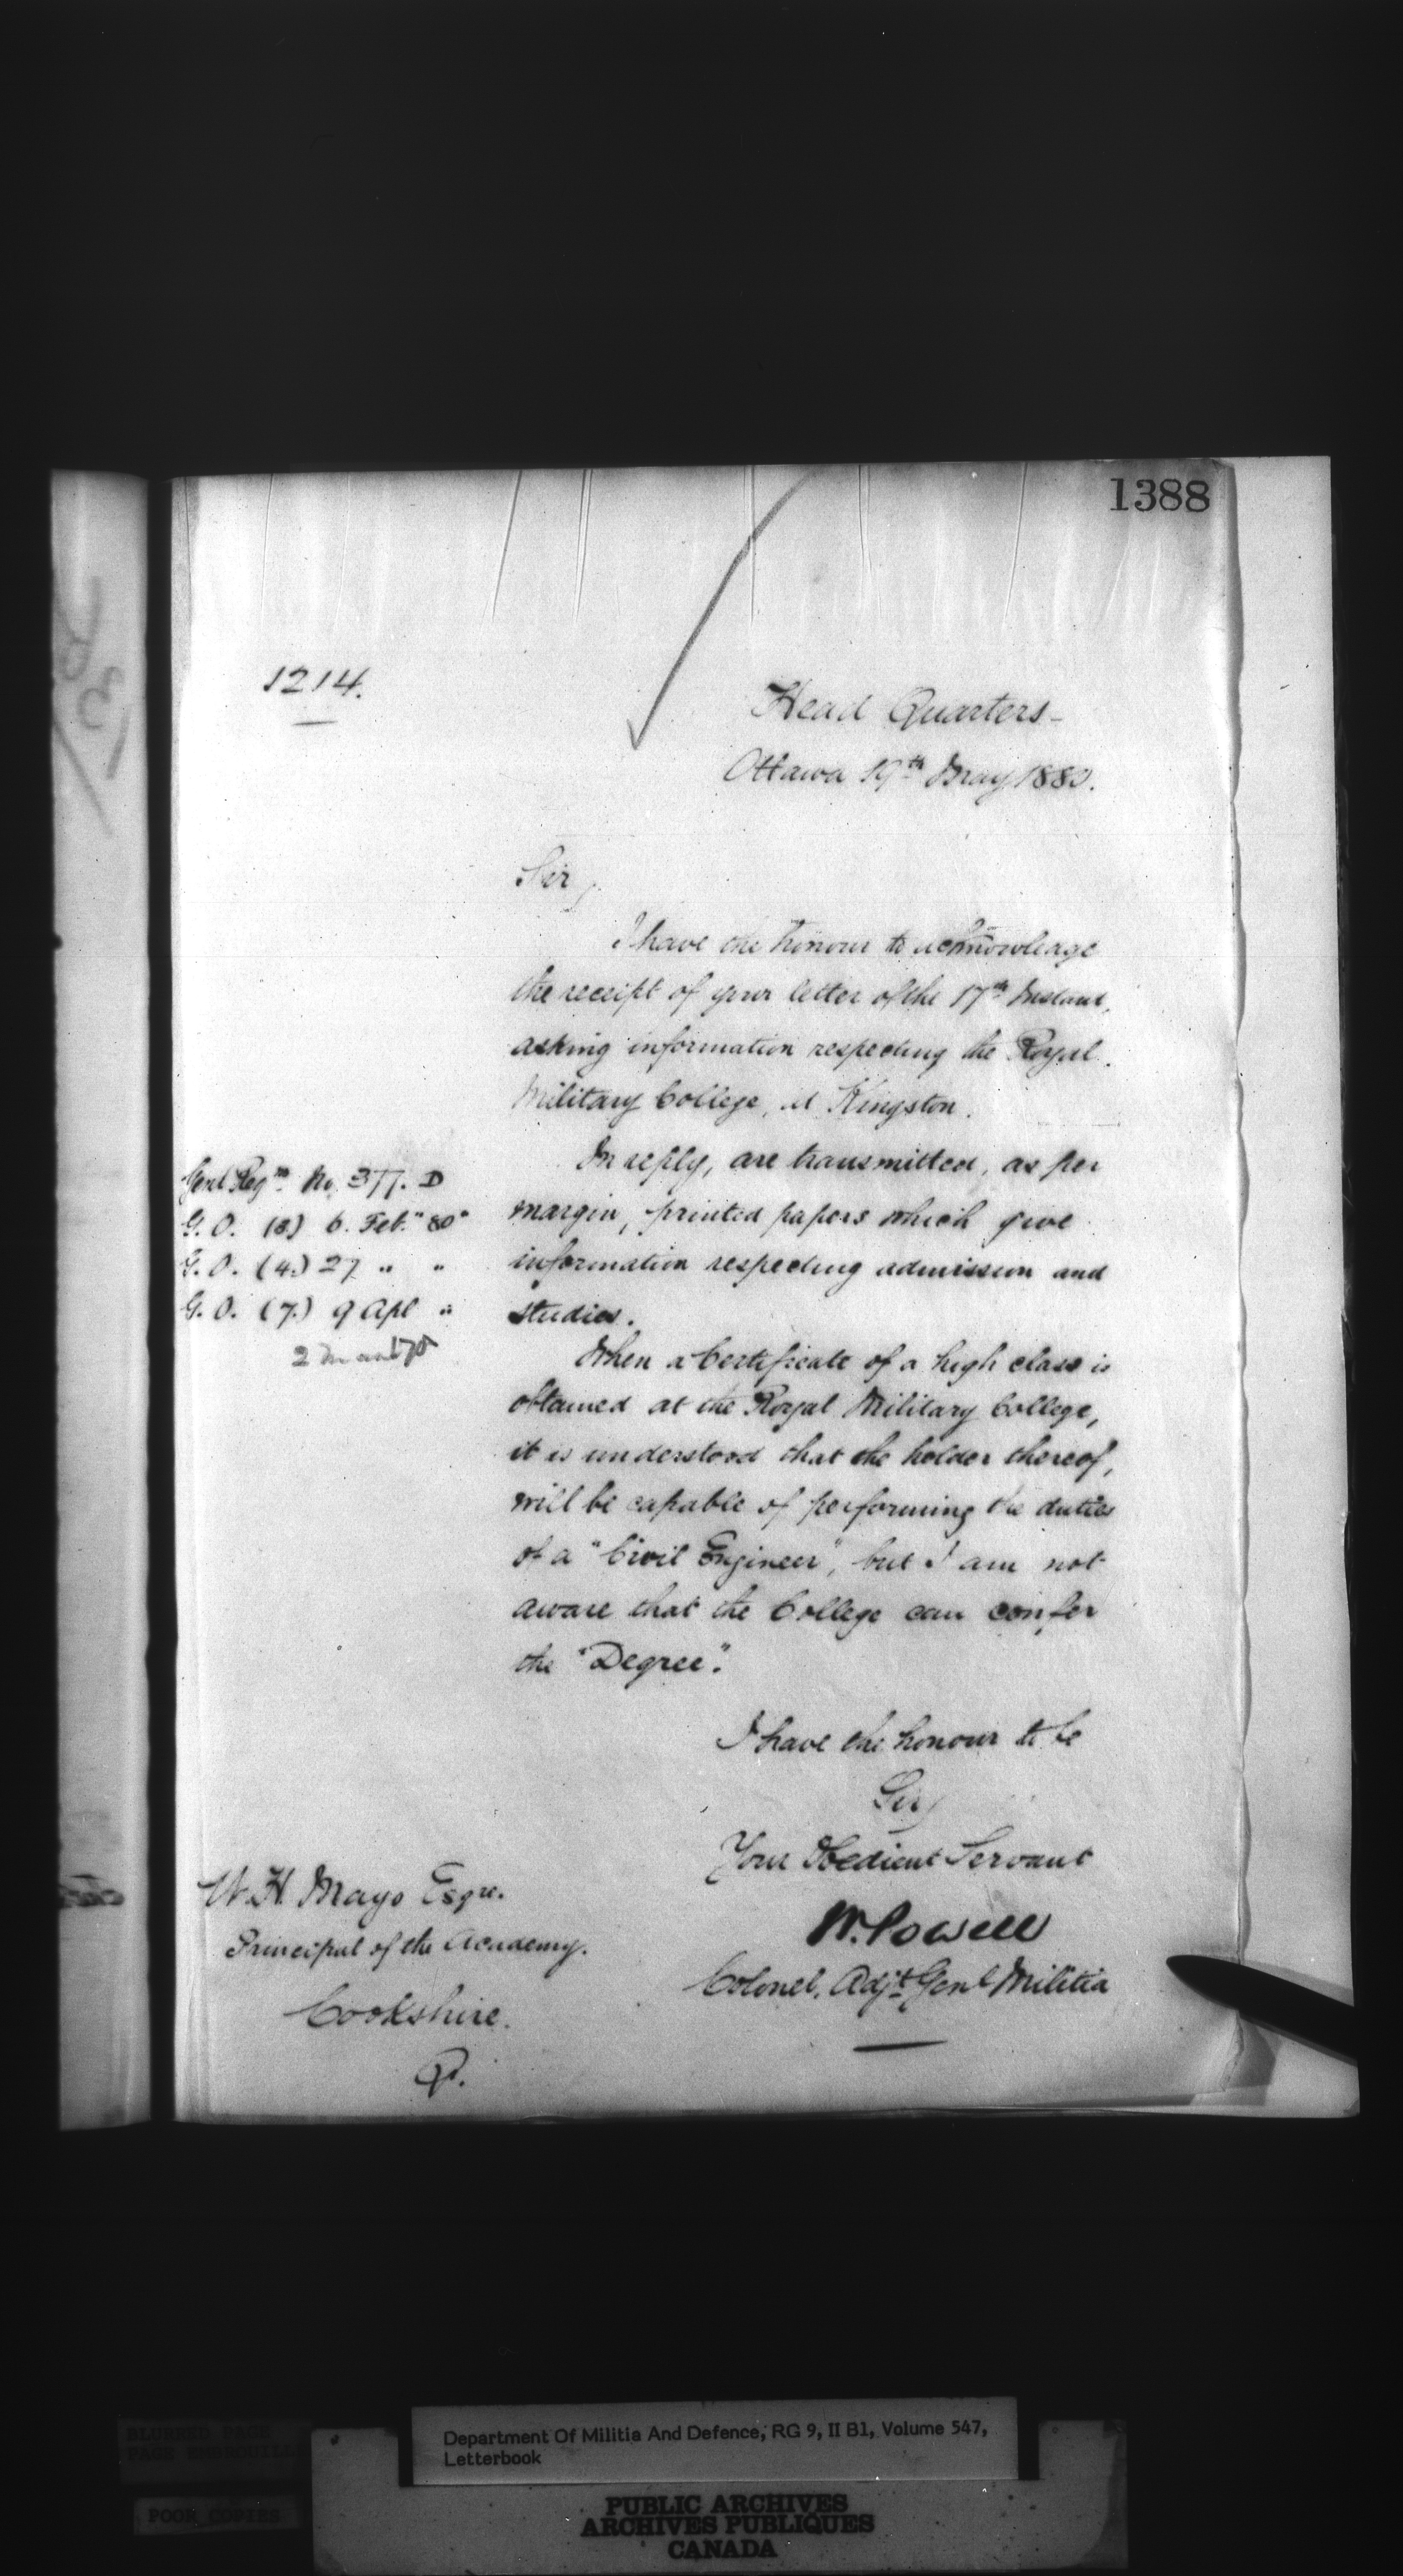 1388
1214.
Head Quarters
Ottawa 19th May 1880.
Sir,
I have the honour to acknowledge
the receipt of your letter of the 17th Instant,
asking information respecting the Royal
Military College, at Kingston.
In reply, are transmitted, as per
margin, printed papers which give
information respecting admission and
studies.
Genl Regns No. 377. D
G. O. (8) 6. Feb. " 80"
G. O. (4.) 27 " "
G. O. (7.) 9 Apl "
When a Certificate of a high class is
obtained at the Royal Military College,
it is understood that the holder thereof,
will be capable of performing the duties
of a "Civil Engineer", but I am not
aware that the College can confer
the "Degree".
I have the honour to be
Sir,
Your Obedient Servant
W. Powell
Colonel, Adjt Genl Militia
W. H. Mayo Esqre.
Principal of the Academy.
Cookshire.
Q.
BLURRED PAGE
POOR COPIES
Department Of Militia And Defence, RG 9, II B1, Volume 547,
Letterbook
PUBLIC ARCHIVES
ARCHIVES PUBLIQUES
CANADA